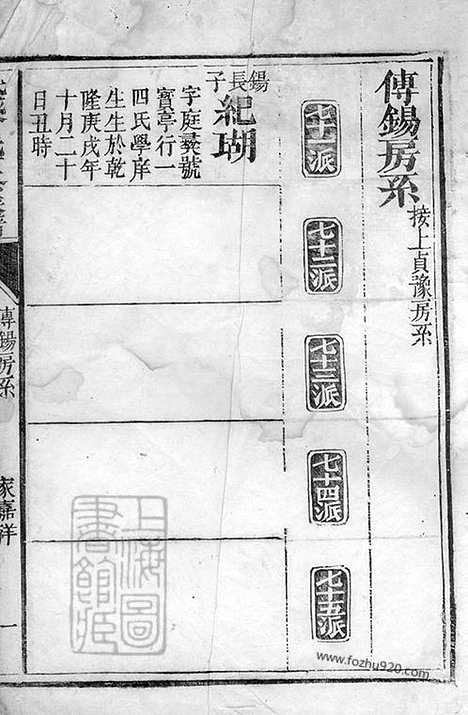 傳錫房系 接上貞豫房系
七十一派
七十二派
七十三派
七十四派
七十五派
錫長子 紀瑚
字庭彞號
寶亭行一
四氏學庠
生生於乾
隆庚戌年
十月二十
日丑時
傳錫房系
家嘉祥
一
上海圖
書館藏
www.fozhu920.com